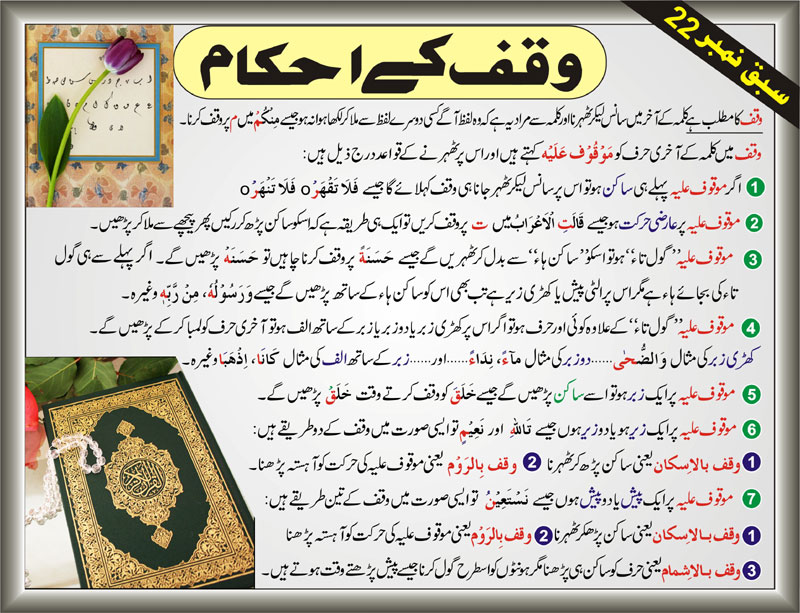 سبق نمبر 22
وقف کے احکام
وقف کا مطلب ہے کلمہ کے آخر میں سانس لیکر ٹھہرنا اور کلمہ سے مراد یہ ہے کہ وہ لفظ آگے کسی دوسرے لفظ سے ملا کر لکھا ہوا نہ ہو جیسے مِنْكُمْ میں م پر وقف کرنا۔
وقف میں کلمہ کے آخری حرف کو مَوْقُوْف عَلَیْه کہتے ہیں اور اس پر ٹھہرنے کے قواعد درج ذیل ہیں:
1 اگر موقوف علیہ پہلے ہی ساکن ہو تو اس پر سانس لیکر ٹھہر جانا ہی وقف کہلائے گا جیسے فَلَا تَقْهَرْ o فَلَا تَنْهَرْ o
2 موقوف علیہ پر عارضی حرکت ہو جیسے قَالَتِ الْاَعْرَابُ میں ت پر وقف کریں تو ایک ہی طریقہ ہے کہ اسکو ساکن پڑھ کر رکیں پھر پیچھے سے ملا کر پڑھیں۔
3 موقوف علیہ ”گول تاء“ ہو تو اسکو ”ساکن ہاء“ سے بدل کر ٹھہریں گے جیسے حَسَنَةً پر وقف کرنا چاہیں تو حَسَنَهْ پڑھیں گے۔ اگر پہلے سے ہی گول
تاء کی بجائے ہاء ہے مگر اس پر الٹی پیش یا کھڑی زیر ہے تب بھی اس کو ساکن ہاء کے ساتھ پڑھیں گے جیسے وَرَسُوْلُهٗ، مِنْ رَّبِّهٖ وغیرہ۔
4 موقوف علیہ ”گول تاء“ کے علاوہ کوئی اور حرف ہو تو اگر اس پر کھڑی زبر یا دو زبر یا زبر کے ساتھ الف ہو تو آخری حرف کو لمبا کر کے پڑھیں گے۔
کھڑی زبر کی مثال وَالضُّحٰی ...... دو زبر کی مثال مَآءً، نِدَآءً ...... اور ...... زبر کے ساتھ الف کی مثال كَانَا، اِذْهَبَا وغیرہ۔
5 موقوف علیہ پر ایک زبر ہو تو اسے ساکن پڑھیں گے جیسے خَلَقَ کو وقف کرتے وقت خَلَقْ پڑھیں گے۔
6 موقوف علیہ پر ایک زیر ہو یا دو زیر ہوں جیسے تَاللهِ اور نَعِيْمٍ تو ایسی صورت میں وقف کے دو طریقے ہیں:
1 وقف بالاِسکان یعنی ساکن پڑھ کر ٹھہرنا 2 وقف بِالرَوْم یعنی موقوف علیہ کی حرکت کو آہستہ پڑھنا۔
7 موقوف علیہ پر ایک پیش یا دو پیش ہوں جیسے نَسْتَعِيْنُ تو ایسی صورت میں وقف کے تین طریقے ہیں:
1 وقف بالاِسکان یعنی ساکن پڑھکر ٹھہرنا 2 وقف بِالرَوْم یعنی موقوف علیہ کی حرکت کو آہستہ پڑھنا
3 وقف بالاِشمام یعنی حرف کو ساکن ہی پڑھنا مگر ہونٹوں کو اسطرح گول کرنا جیسے پیش پڑھتے وقت ہوتے ہیں۔